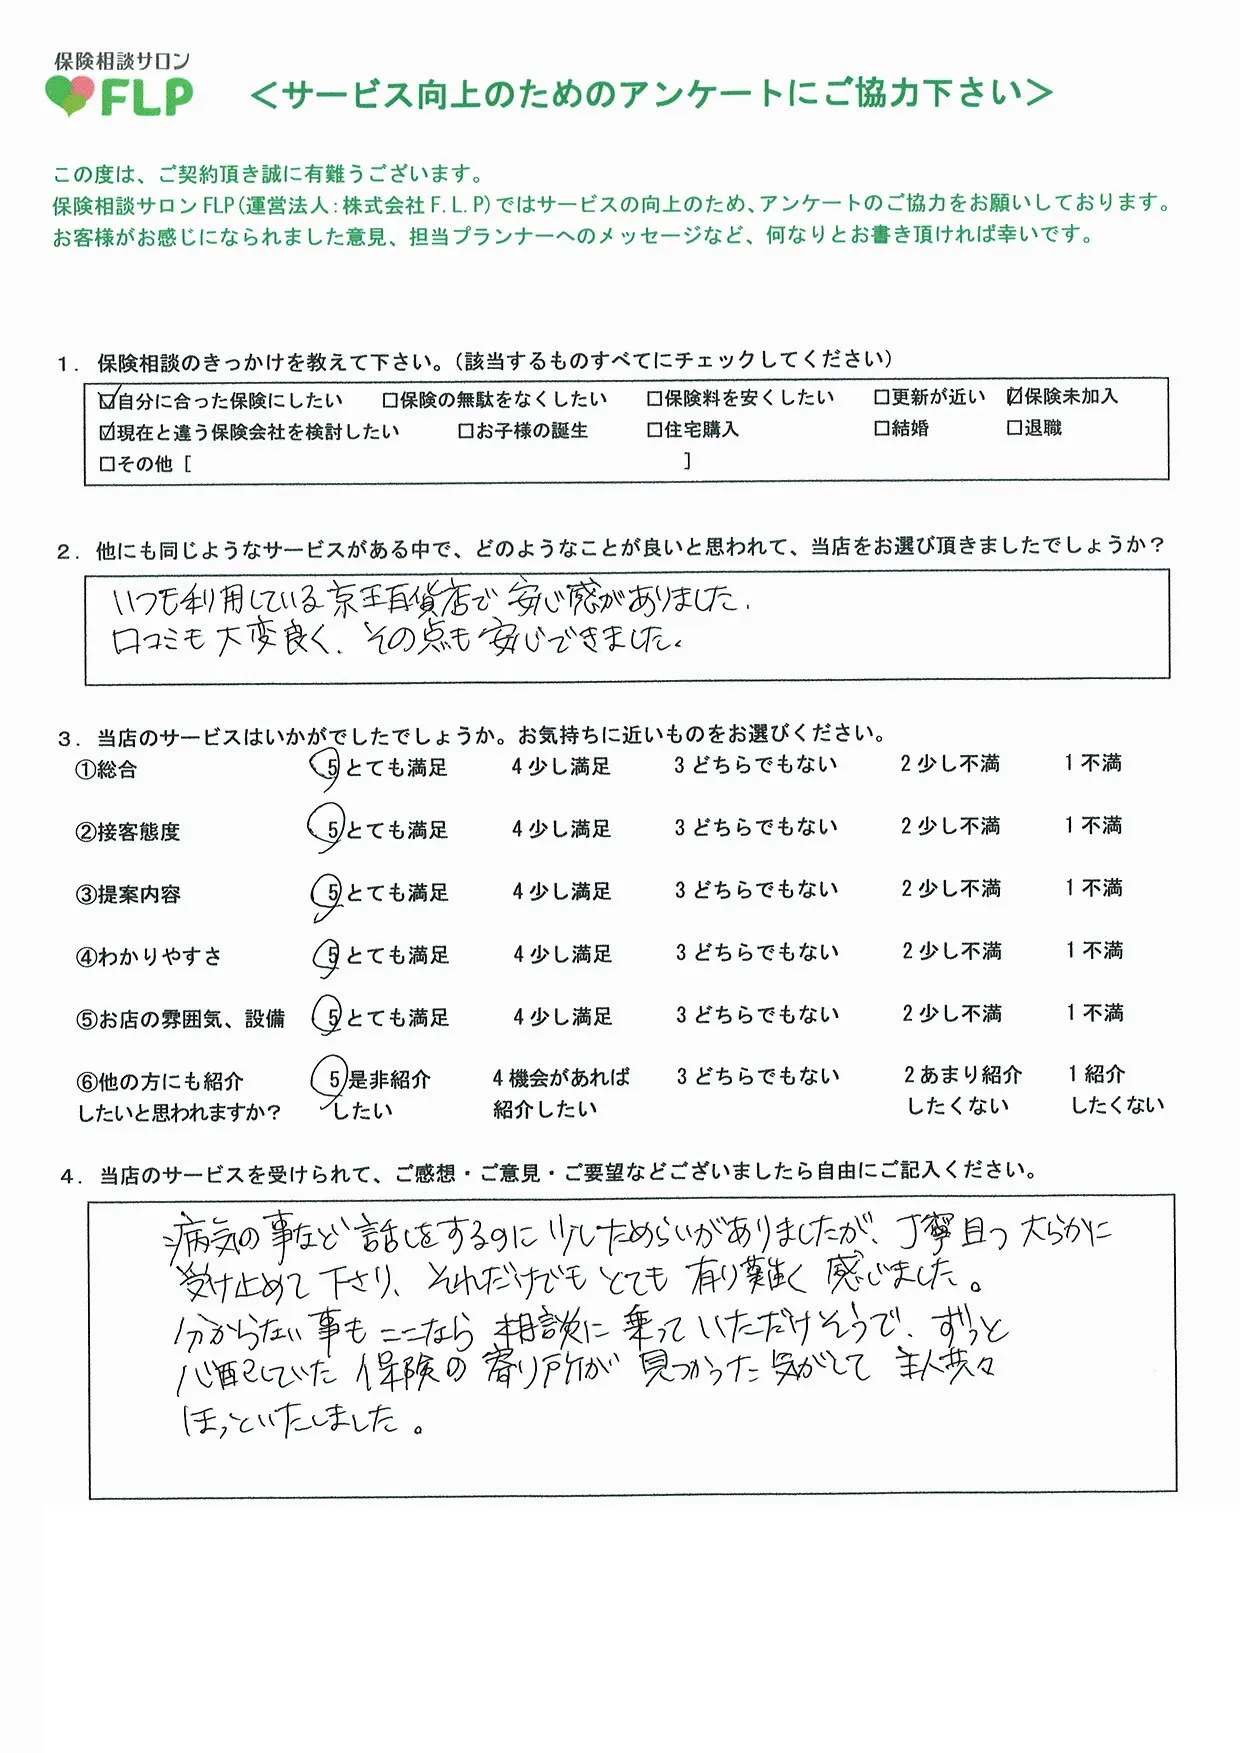 保険相談サロン
FLP
＜サービス向上のためのアンケートにご協力下さい＞
この度は、ご契約頂き誠に有難うございます。
保険相談サロン FLP(運営法人:株式会社 F. L. P)ではサービスの向上のため、アンケートのご協力をお願いしております。
お客様がお感じになられました意見、担当プランナーへのメッセージなど、何なりとお書き頂ければ幸いです。
1. 保険相談のきっかけを教えて下さい。(該当するものすべてにチェックしてください)
☑自分に合った保険にしたい □保険の無駄をなくしたい □保険料を安くしたい □更新が近い ☑保険未加入
☑現在と違う保険会社を検討したい □お子様の誕生 □住宅購入 □結婚 □退職
□その他 [ ]
2. 他にも同じようなサービスがある中で、どのようなことが良いと思われて、当店をお選び頂きましたでしょうか？
いつも利用している京王百貨店で安心感がありました.
口コミも大変良く、その点も安心できました。
3. 当店のサービスはいかがでしたでしょうか。お気持ちに近いものをお選びください。
①総合 5 とても満足 4 少し満足 3 どちらでもない 2 少し不満 1 不満
②接客態度 5 とても満足 4 少し満足 3 どちらでもない 2 少し不満 1 不満
③提案内容 5 とても満足 4 少し満足 3 どちらでもない 2 少し不満 1 不満
④わかりやすさ 5 とても満足 4 少し満足 3 どちらでもない 2 少し不満 1 不満
⑤お店の雰囲気、設備 5 とても満足 4 少し満足 3 どちらでもない 2 少し不満 1 不満
⑥他の方にも紹介 5 是非紹介 4 機会があれば 3 どちらでもない 2 あまり紹介 1 紹介
したいと思われますか？ したい 紹介したい したくない したくない
4. 当店のサービスを受けられて、ご感想・ご意見・ご要望などございましたら自由にご記入ください。
病気の事など話しをするのに少しためらいがありましたが、丁寧且つ大らかに
受け止めて下さり、それだけでもとても有り難く感じました。
分からない事もここなら相談に乗っていただけそうで、ずっと
心配していた保険の寄り所が見つかった気がして主人共々
ほっといたしました。